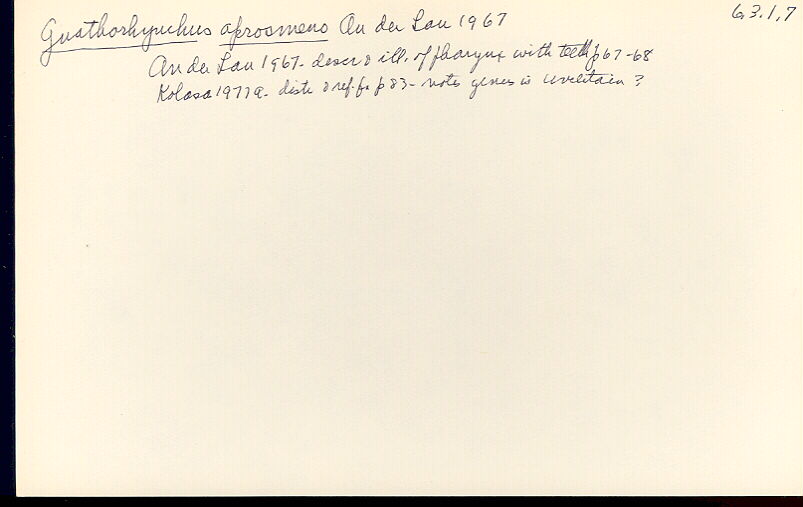 Gnathorhynchus aprosmeno An der Lan 1967
6,3.1,7
An der Lan 1967 - descr & ill. of pharynx with teeth p 67-68
Kolasa 1977a - distr & ref. p 83 - notes genus is ?